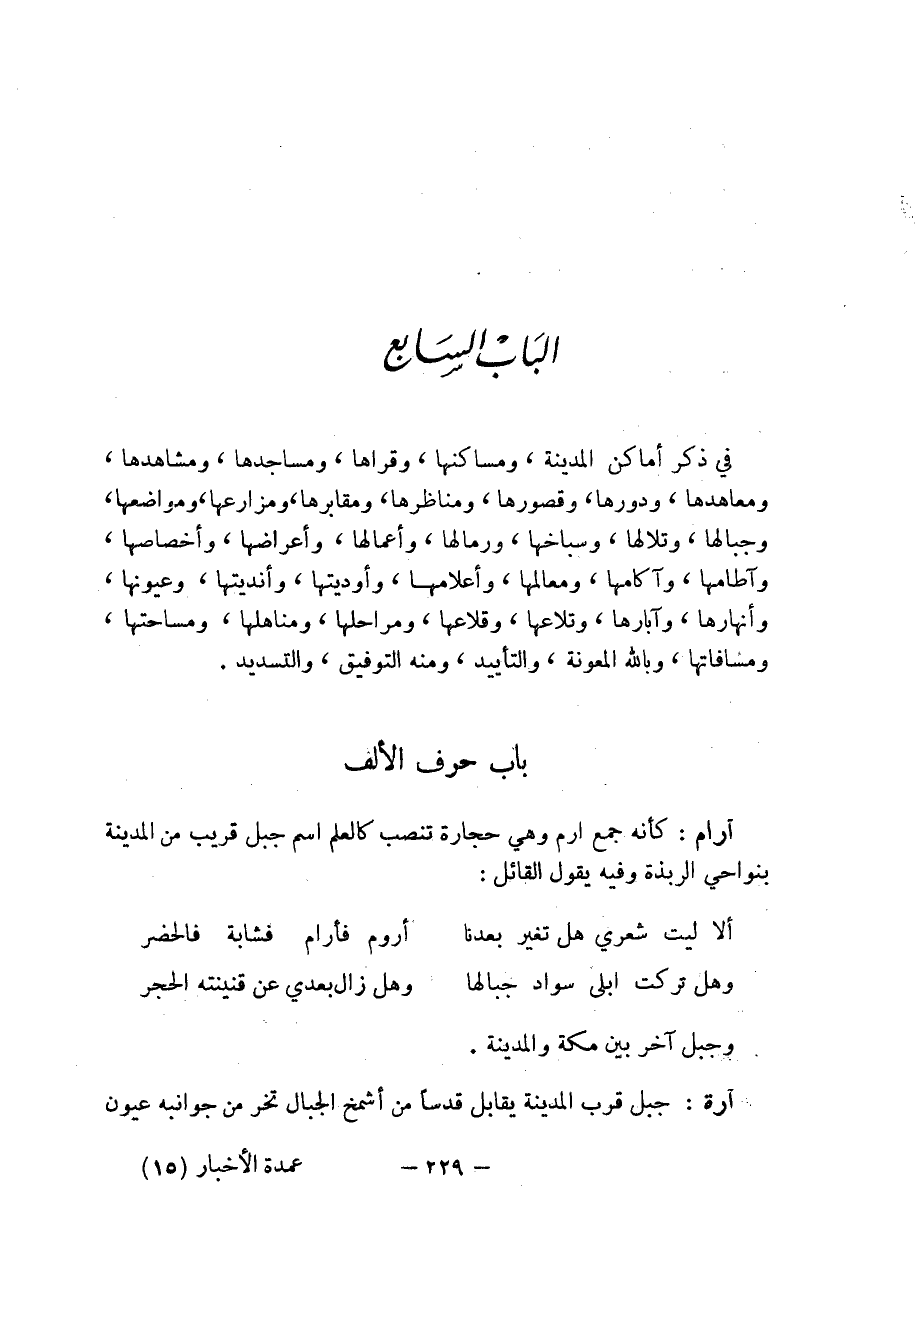 الباب السابع
في ذكر أماكن المدينة ، ومساكنها ، وقراها ، ومساجدها ، ومشاهدها ،
ومعاهدها ، ودورها، وقصورها ، ومناظرها، ومقابرها، ومزارعها، ومواضعها،
وجبالها ، وتلالها ، وسباخها ، ورمالها ، وأعمالها ، وأعراضها ، وأخصاصها ،
وآطامها ، وآكامها ، ومعالمها ، وأعلامهـا ، وأوديتها ، وأنديتها ، وعيونها ،
وأنهارها ، وآبارها ، وتلاعها ، وقلاعها ، ومراحلها ، ومناهلها ، ومساحتها ،
ومسافاتها ، وبالله المعونة ، والتأييد ، ومنه التوفيق ، والتسديد .
باب حرف الألف
آرام : كأنه جمع ارم وهي حجارة تنصب كالعلم اسم جبل قريب من المدينة
بنواحي الربذة وفيه يقول القائل :
ألا ليت شعري هل تغير بعدنا أروم فأرام فشابة فالحضر
وهل تركت ابلى سواد جبالها وهل زال بعدي عن قنينته الحجر
وجبل آخر بين مكة والمدينة .
آرة : جبل قرب المدينة يقابل قدساً من أشمخ الجبال تخر من جوانبه عيون
— ٢٢٩ — عمدة الأخبار (١٥)